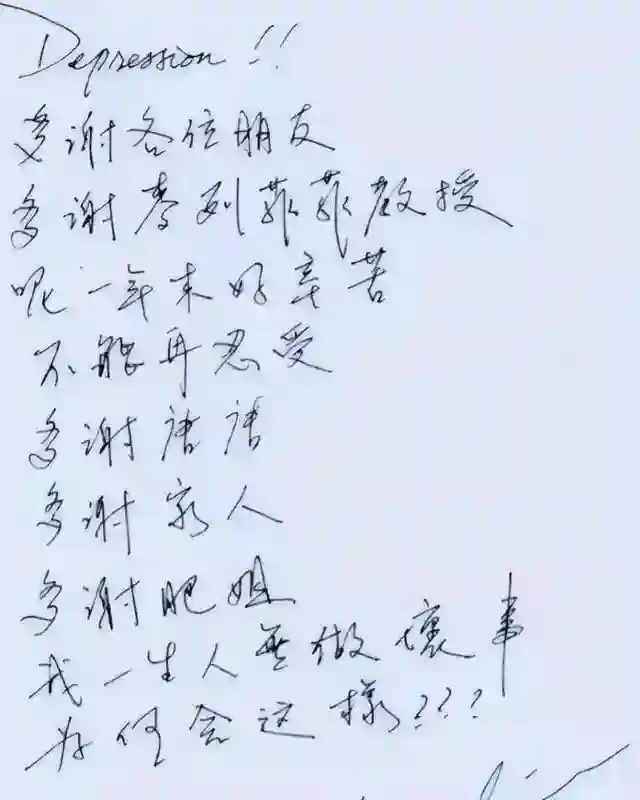 Depression !!
多谢各位朋友
多谢麦列菲菲教授
呢一年来好辛苦
不能再忍受
多谢唐唐
多谢家人
多谢肥姐
我一生人無做壞事
为何会这樣???